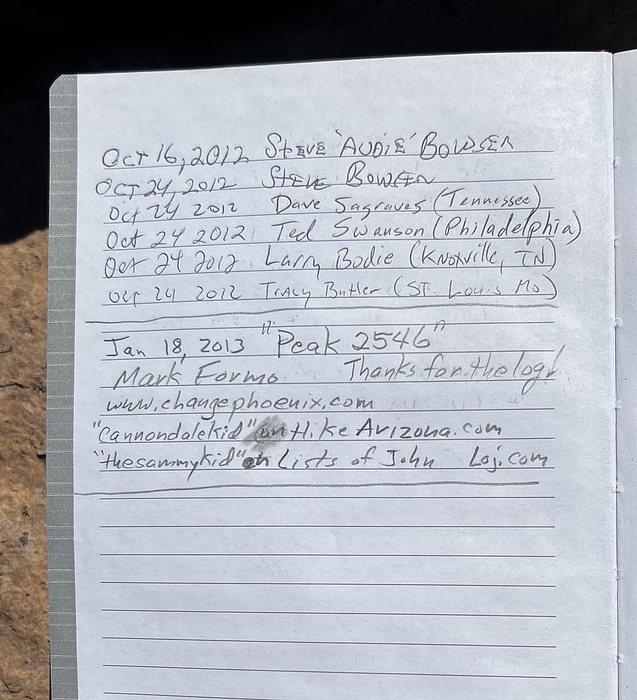 Oct 16, 2012 STEVE 'AUDIE' BOWSER
OCT 24, 2012 STEVE BOWEN
Oct 24 2012 Dave Sagraves (Tennessee)
Oct 24 2012 Ted Swanson (Philadelphia)
Oct 24 2012 Larry Bodie (Knoxville, TN)
Oct 24 2012 Tracy Butler (ST. Louis Mo)
Jan 18, 2013 "Peak 2546"
Mark Formo Thanks for the log!
www.changephoenix.com
"Cannondalekid" on HikeArizona.com
"thesammykid" on Lists of John Loj.com